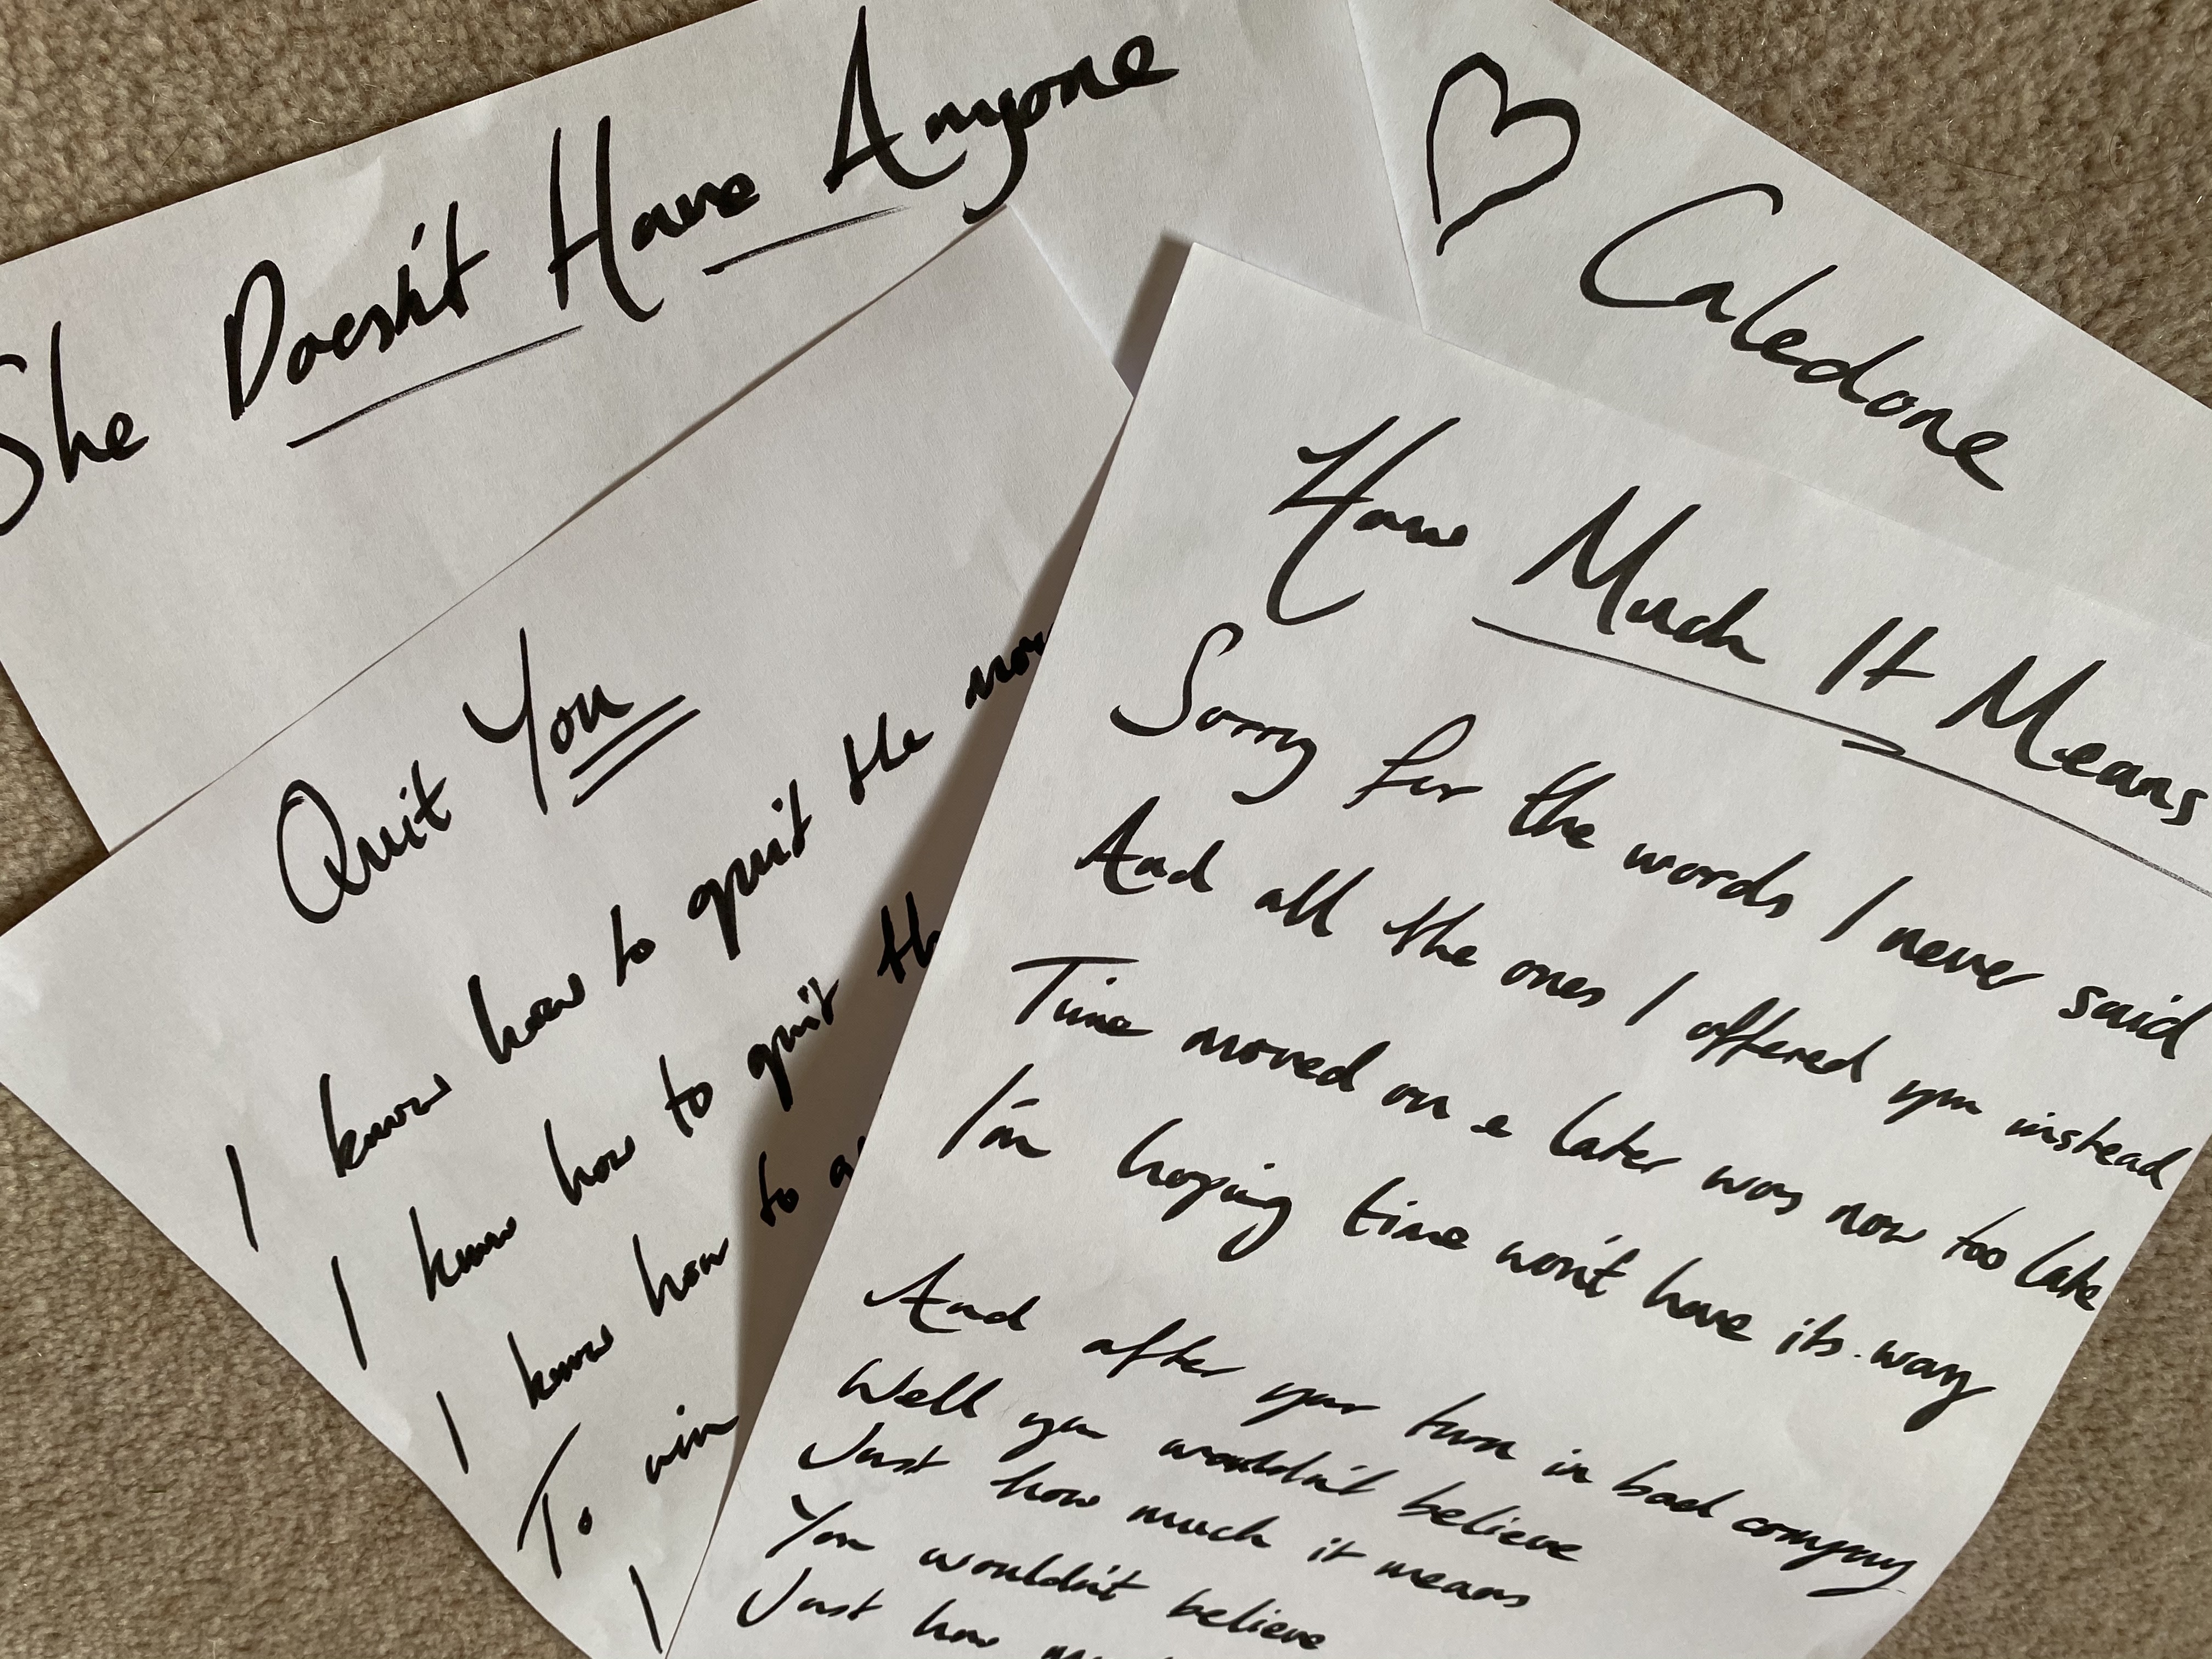 She Doesn't Have Anyone
♡ Caledone
Quit You
I know how to quit the
I know how to quit
I know how to
To win
I
How Much It Means
Sorry for the words I never said
And all the ones I offered you instead
Time moved on & later was now too late
I'm hoping time won't have its way
And after your turn in bad company
Well you wouldn't believe
Just how much it means
You wouldn't believe
Just how